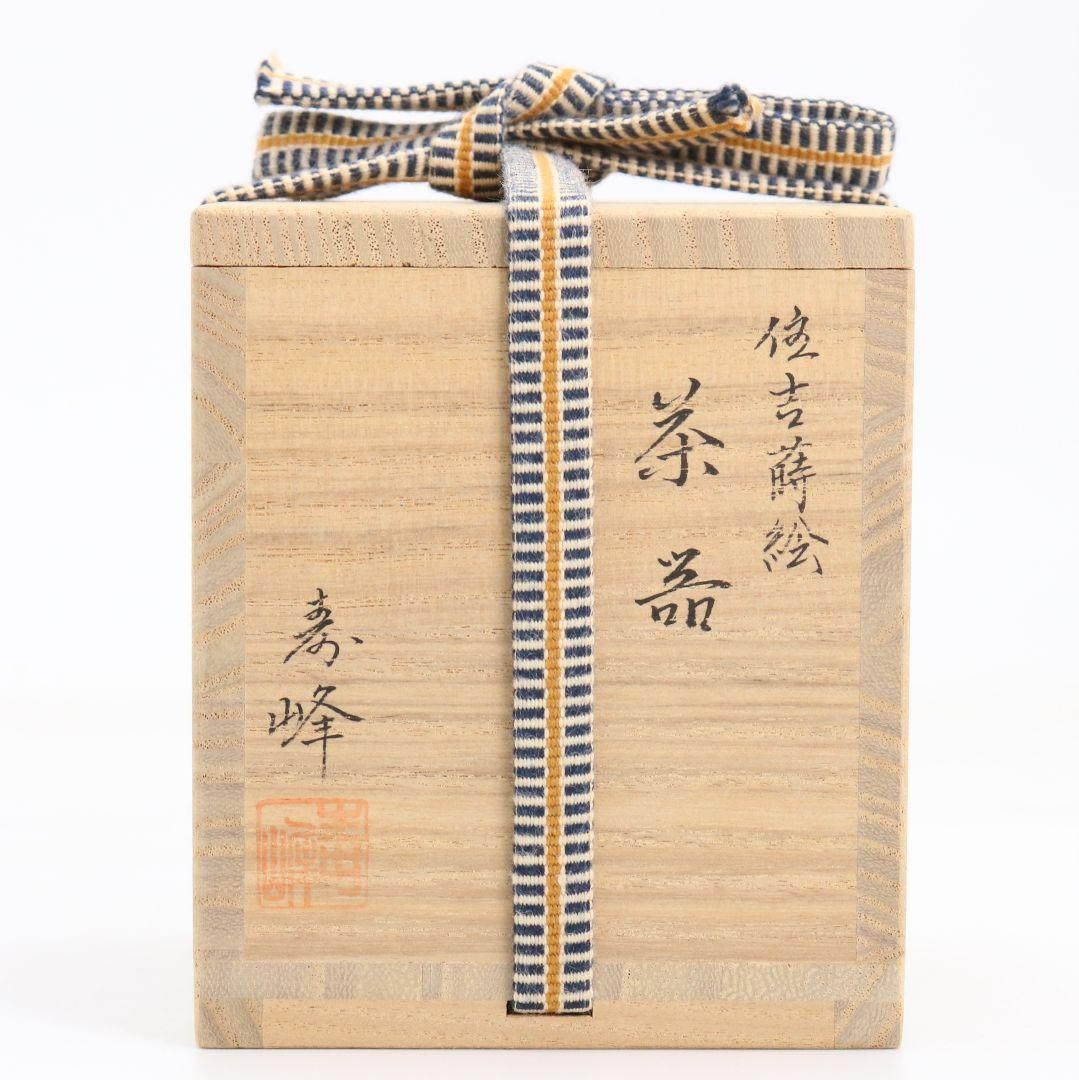 住吉蒔絵
茶器
寿峰